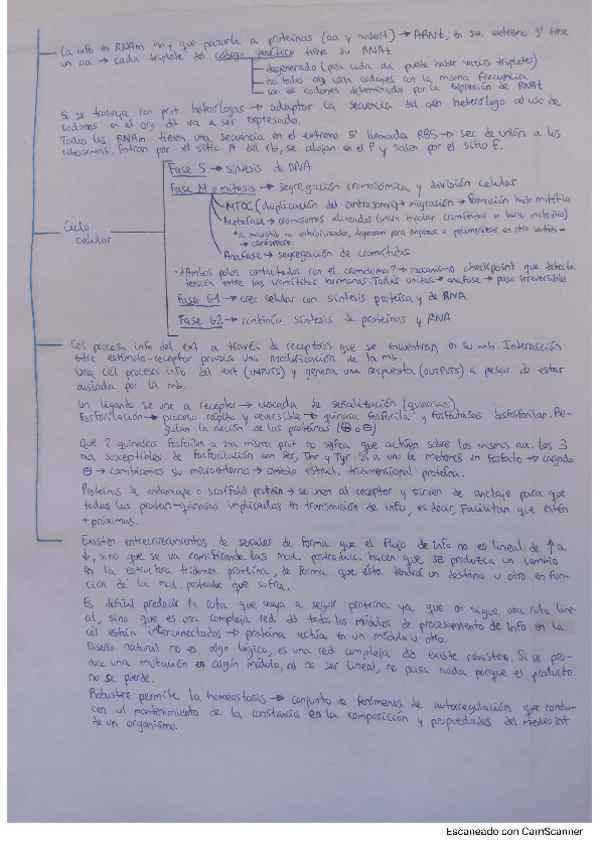 La info en RNAm hay que pasarla a proteínas (aa y nodest) → ARNt, en su extremo 3' tiene
un aa → cada triplete del código genético tiene su RNAt
degenerado (para cada aa puede haber varios tripletes)
no todos org usan codones con la misma frecuencia
uso de codones determinado por la expresión de RNAt
Si se trabaja con prot heterólogas → adaptar la secuencia del gen heterólogo al uso de
codones en el org dd va a ser expresado.
Todos los RNAm tienen una secuencia en el extremo 5' llamada RBS → sec de unión a los
ribosomas. Entran por el sitio A del rb, se alojan en el P y salen por el sitio E.
Fase S → síntesis de DNA
Fase M o mitosis → segregación cromosómica y división celular
MTOC (duplicación del centrosoma) → migración → formación huso mitótico
Metafase → cromosomas alineados (unión bipolar cromátidas a huso mitótico)
*Si microtúb no estabilizados, despolim para empezar a polimerizarse en otro sentido →
→ catástrofe.
Anafase → segregación de cromátidas
Ciclo
celular
· ¿Ambos polos contactados con el cromosoma? → mecanismo checkpoint que detecta
tensión entre las cromátidas hermanas. Todas unidas → anafase → paso irreversible
Fase G1 → crec celular con síntesis proteica y de RNA
Fase G2 → continúa síntesis de proteínas y RNA
Cél procesa info del ext a través de receptores que se encuentran en su mb. Interacción
entre estímulo-receptor provoca una modificación de la mb.
Una cél procesa info del ext (INPUTS) y genera una respuesta (OUTPUTS) a pesar de estar
aislada por la mb.
Un ligando se une a receptor → cascada de señalización (quinasas)
Fosforilación → proceso rápido y reversible → quinasa fosforila y fosfatasas desfosforilan. Re-
gulan la acción de las proteínas (⊕ o ⊖)
Que 2 quinasas fosforilen a una misma prot no signfca que actúen sobre los mismos aa. Los 3
aa susceptibles de fosforilación son Ser, Thr y Tyr. Si a uno le metemos un fosfato → cargado
⊖ → cambiamos su microentorno → cambio estruct. tridimensional proteína.
Proteínas de andamiaje o scaffold protein → se unen al receptor y sirven de anclaje para que
todas las protein-quinasas implicadas en transmisión de info, es decir, facilitan que estén
+ próximas.
Existen entrecruzamientos de señales de forma que el flujo de info no es lineal de ↑ a
↓, sino que se va ramificando. Las mod. postraducc. hacen que se produzca un cambio
en la estructura tridimen proteína, de forma que ésta tendrá un destino u otro en fun-
ción de la mod. postradc que sufra.
Es difícil predecir la ruta que vaya a seguir proteína ya que no sigue una ruta line-
al, sino que es una compleja red dd todos los módulos de procesamiento de info en la
cél están interconectados → proteína actúa en un módulo u otro.
Diseño natural no es algo lógico, es una red compleja dd existe robustez. Si se pro-
duce una mutación en algún módulo, al no ser lineal, no pasa nada porque el producto
no se pierde.
Robustez permite la homeostasis → conjunto de fenómenos de autorregulación que condu-
cen al mantenimiento de la constancia en la composición y propiedades del medio int
de un organismo.
Escaneado con CamScanner